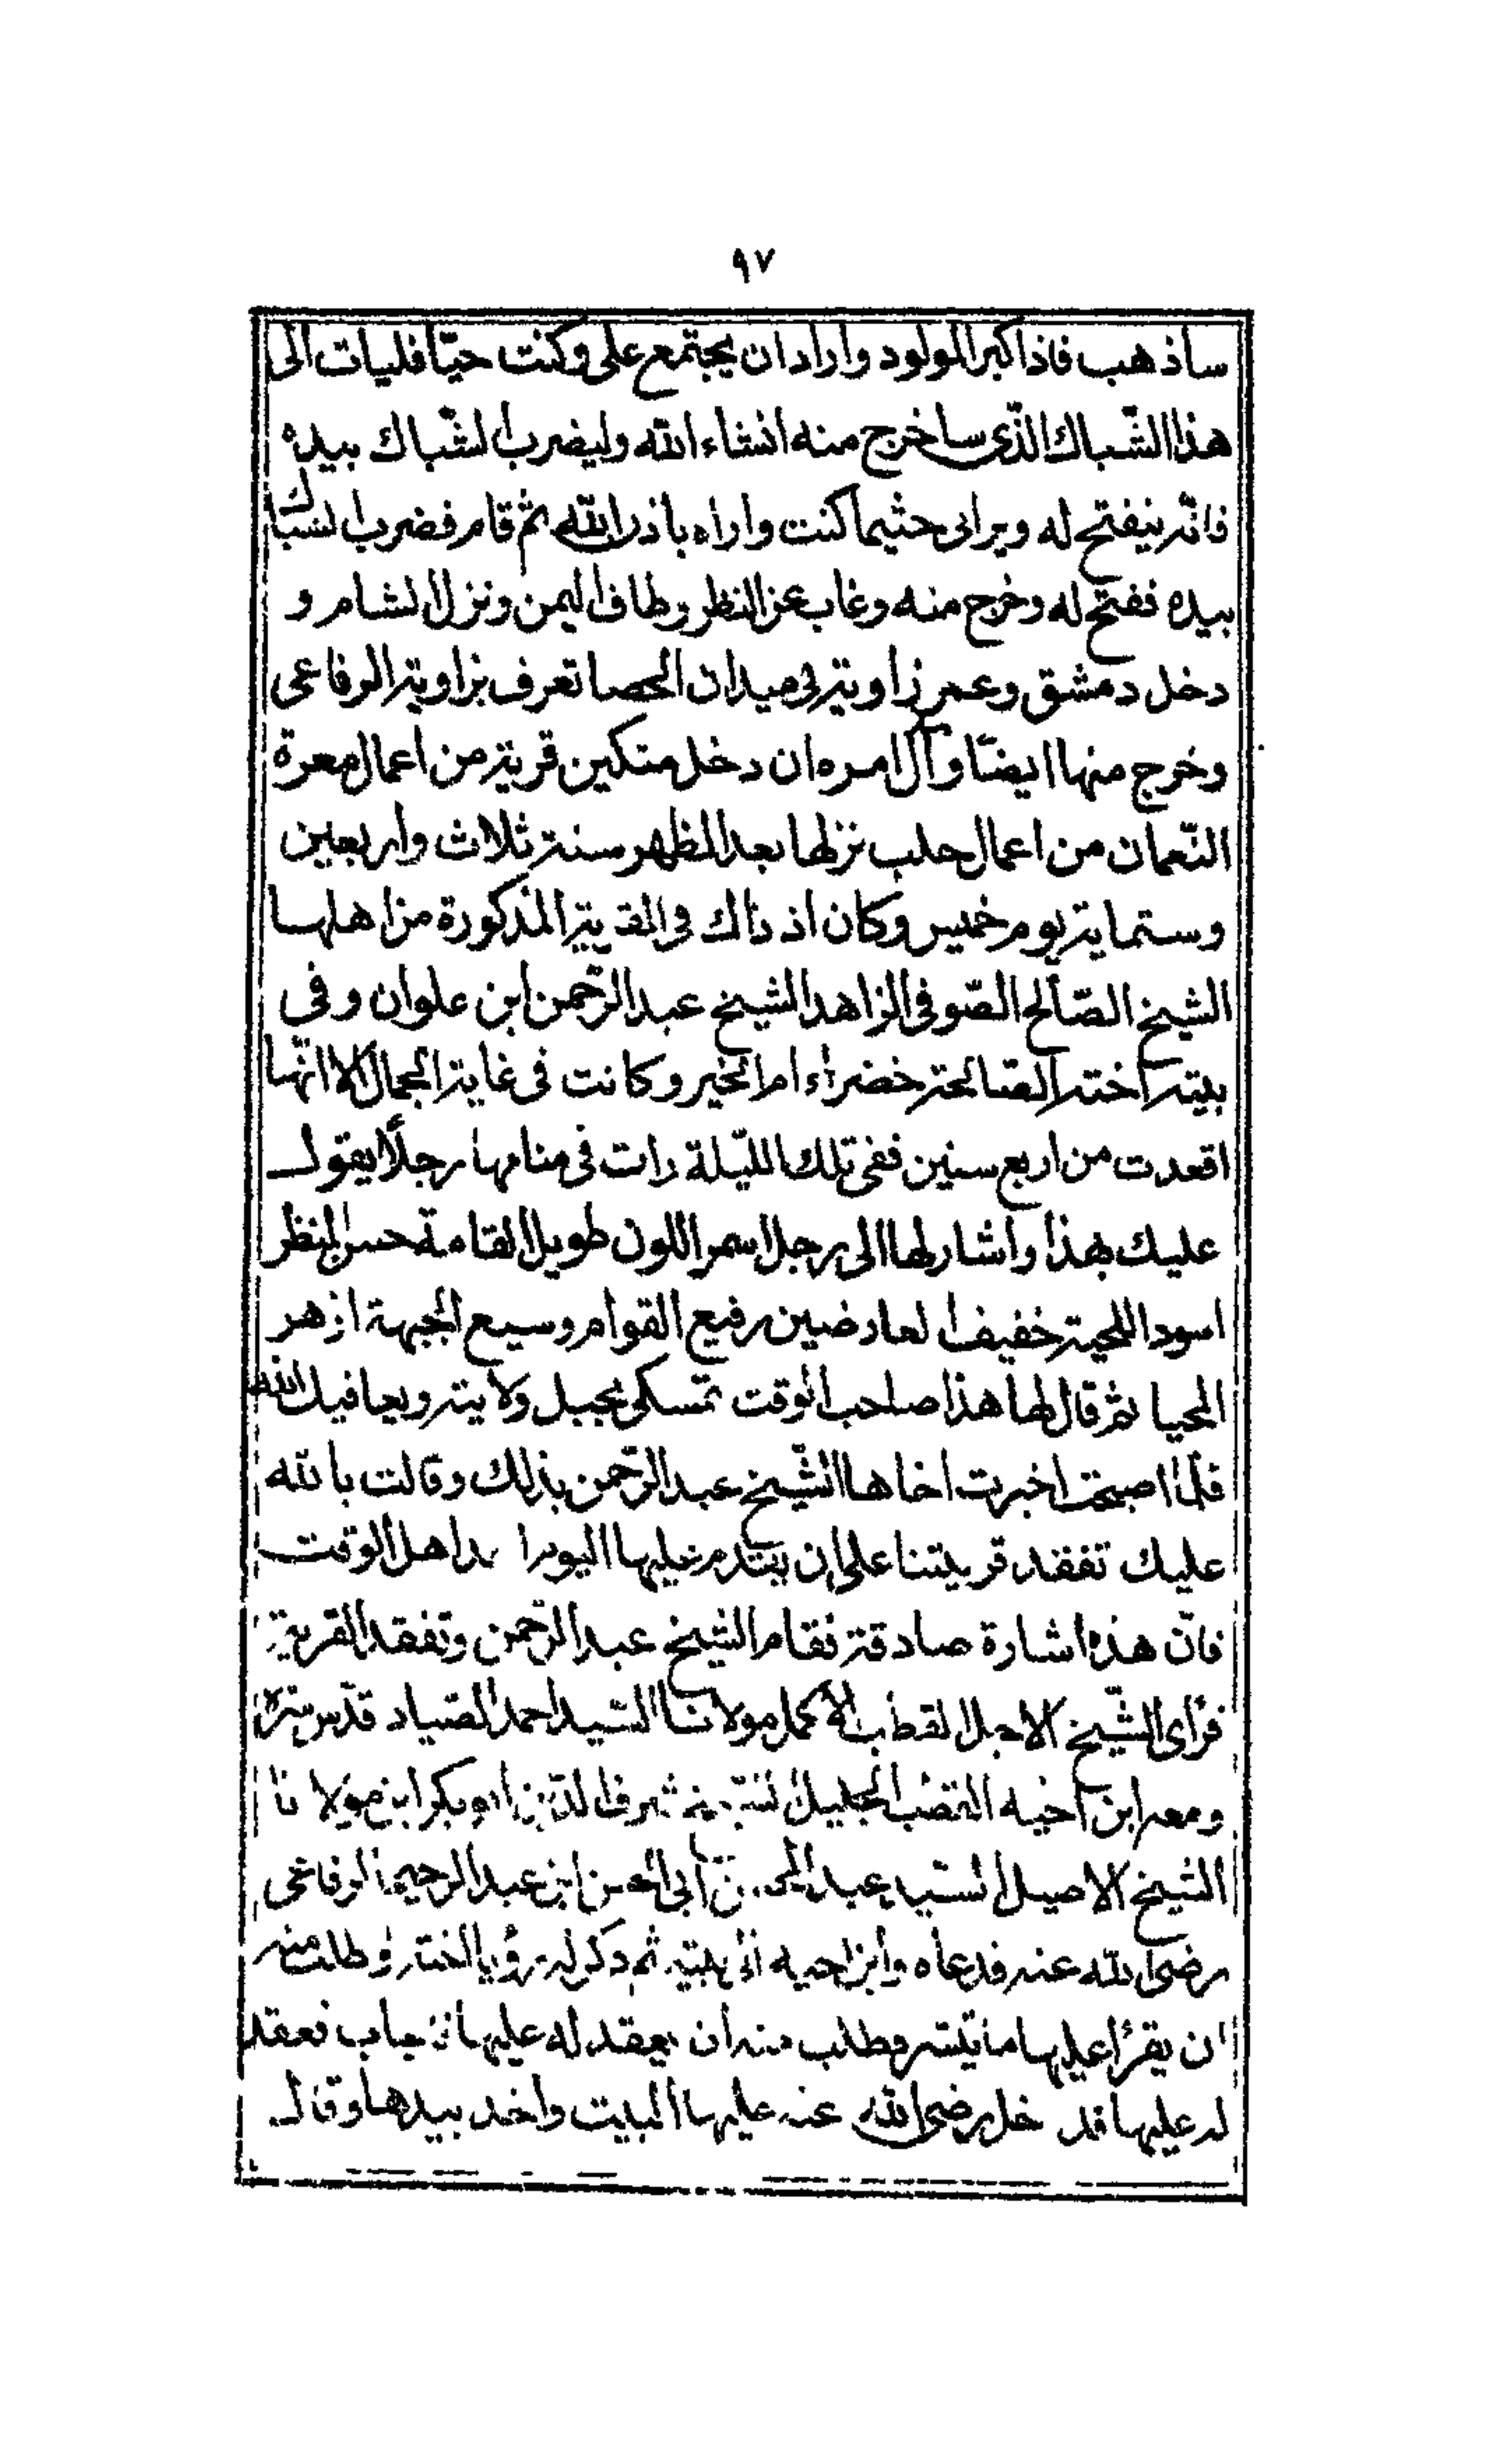 ٩٧
ساذهب فاذا كبر المولود واراد ان يجتمع على وكنت حيّا فليات الى
هذا الشّباك الذّى ساخرج منه انشاء الله وليضرب الشّباك بيده
فانّه ينفتح له ويرانى حثيما كنت واراه باذن الله ثم قام فضرب الشباك
بيده ففتح له وخرج منه وغاب عن النظر وطاف اليمن ونزل الشام و
دخل دمشق وعمر زاوية فى ميدان الحصا تعرف بزاوية الرفاعى
وخرج منها ايضًا وآل امره ان دخل متكين قرية من اعمال معرة
النّعمان من اعمال حلب نزلها بعد الظهر سنة ثلاث واربعين
وستماية يوم خميس وكان اذ ذاك فى القرية المذكورة من اهلها
الشيخ الصّالح الصّوفى الزاهد الشيخ عبد الرّحمن ابن علوان وفى
بيته اخته الصّالحة خضراء ام الخير وكانت فى غاية الجمال الا انّها
اقعدت من اربع سنين ففى تلك اللّيلة رات فى منامها رجلًا يقول
عليك بهذا واشار لها الى رجل اسمر اللون طويل القامة حسن المنظر
اسود اللحية خفيف العارضين رفيع القوام وسيع الجبهة ازهر
المحيا ثم قال لها هذا صاحب الوقت تمسكى بحبل ولايته ويعافيك الله
فلمّا اصبحت اخبرت اخاها الشّيخ عبد الرّحمن بذلك وقالت بالله
عليك تفقد قريتنا على ان يقدم عليها اليوم اهل الوقت
فانّ هذه اشارة صادقة فقام الشيخ عبد الرّحمن وتفقد القرية
فرأى الشّيخ الاجل القطب الاكمل مولانا السّيد احمد الصّياد قدّس سره
ومعه ابن اخيه القطب الجليل شرف الدّين ابو بكر ابن مولانا
الشيخ الاصيل السّيد عبد المحسن ابى الحسن ابن عبد الرحيم الرفاعى
رضى الله عنه فدعاه وابن اخيه الى بيته ثم ذكر له رؤيا اخته وطلب منه
ان يقرأ عليها ما تيسّر وطلب منه ان يعقد له عليها فاجاب فعقد
له عليها فدخل رضى الله عنه عليها البيت واخذ بيدها وقال